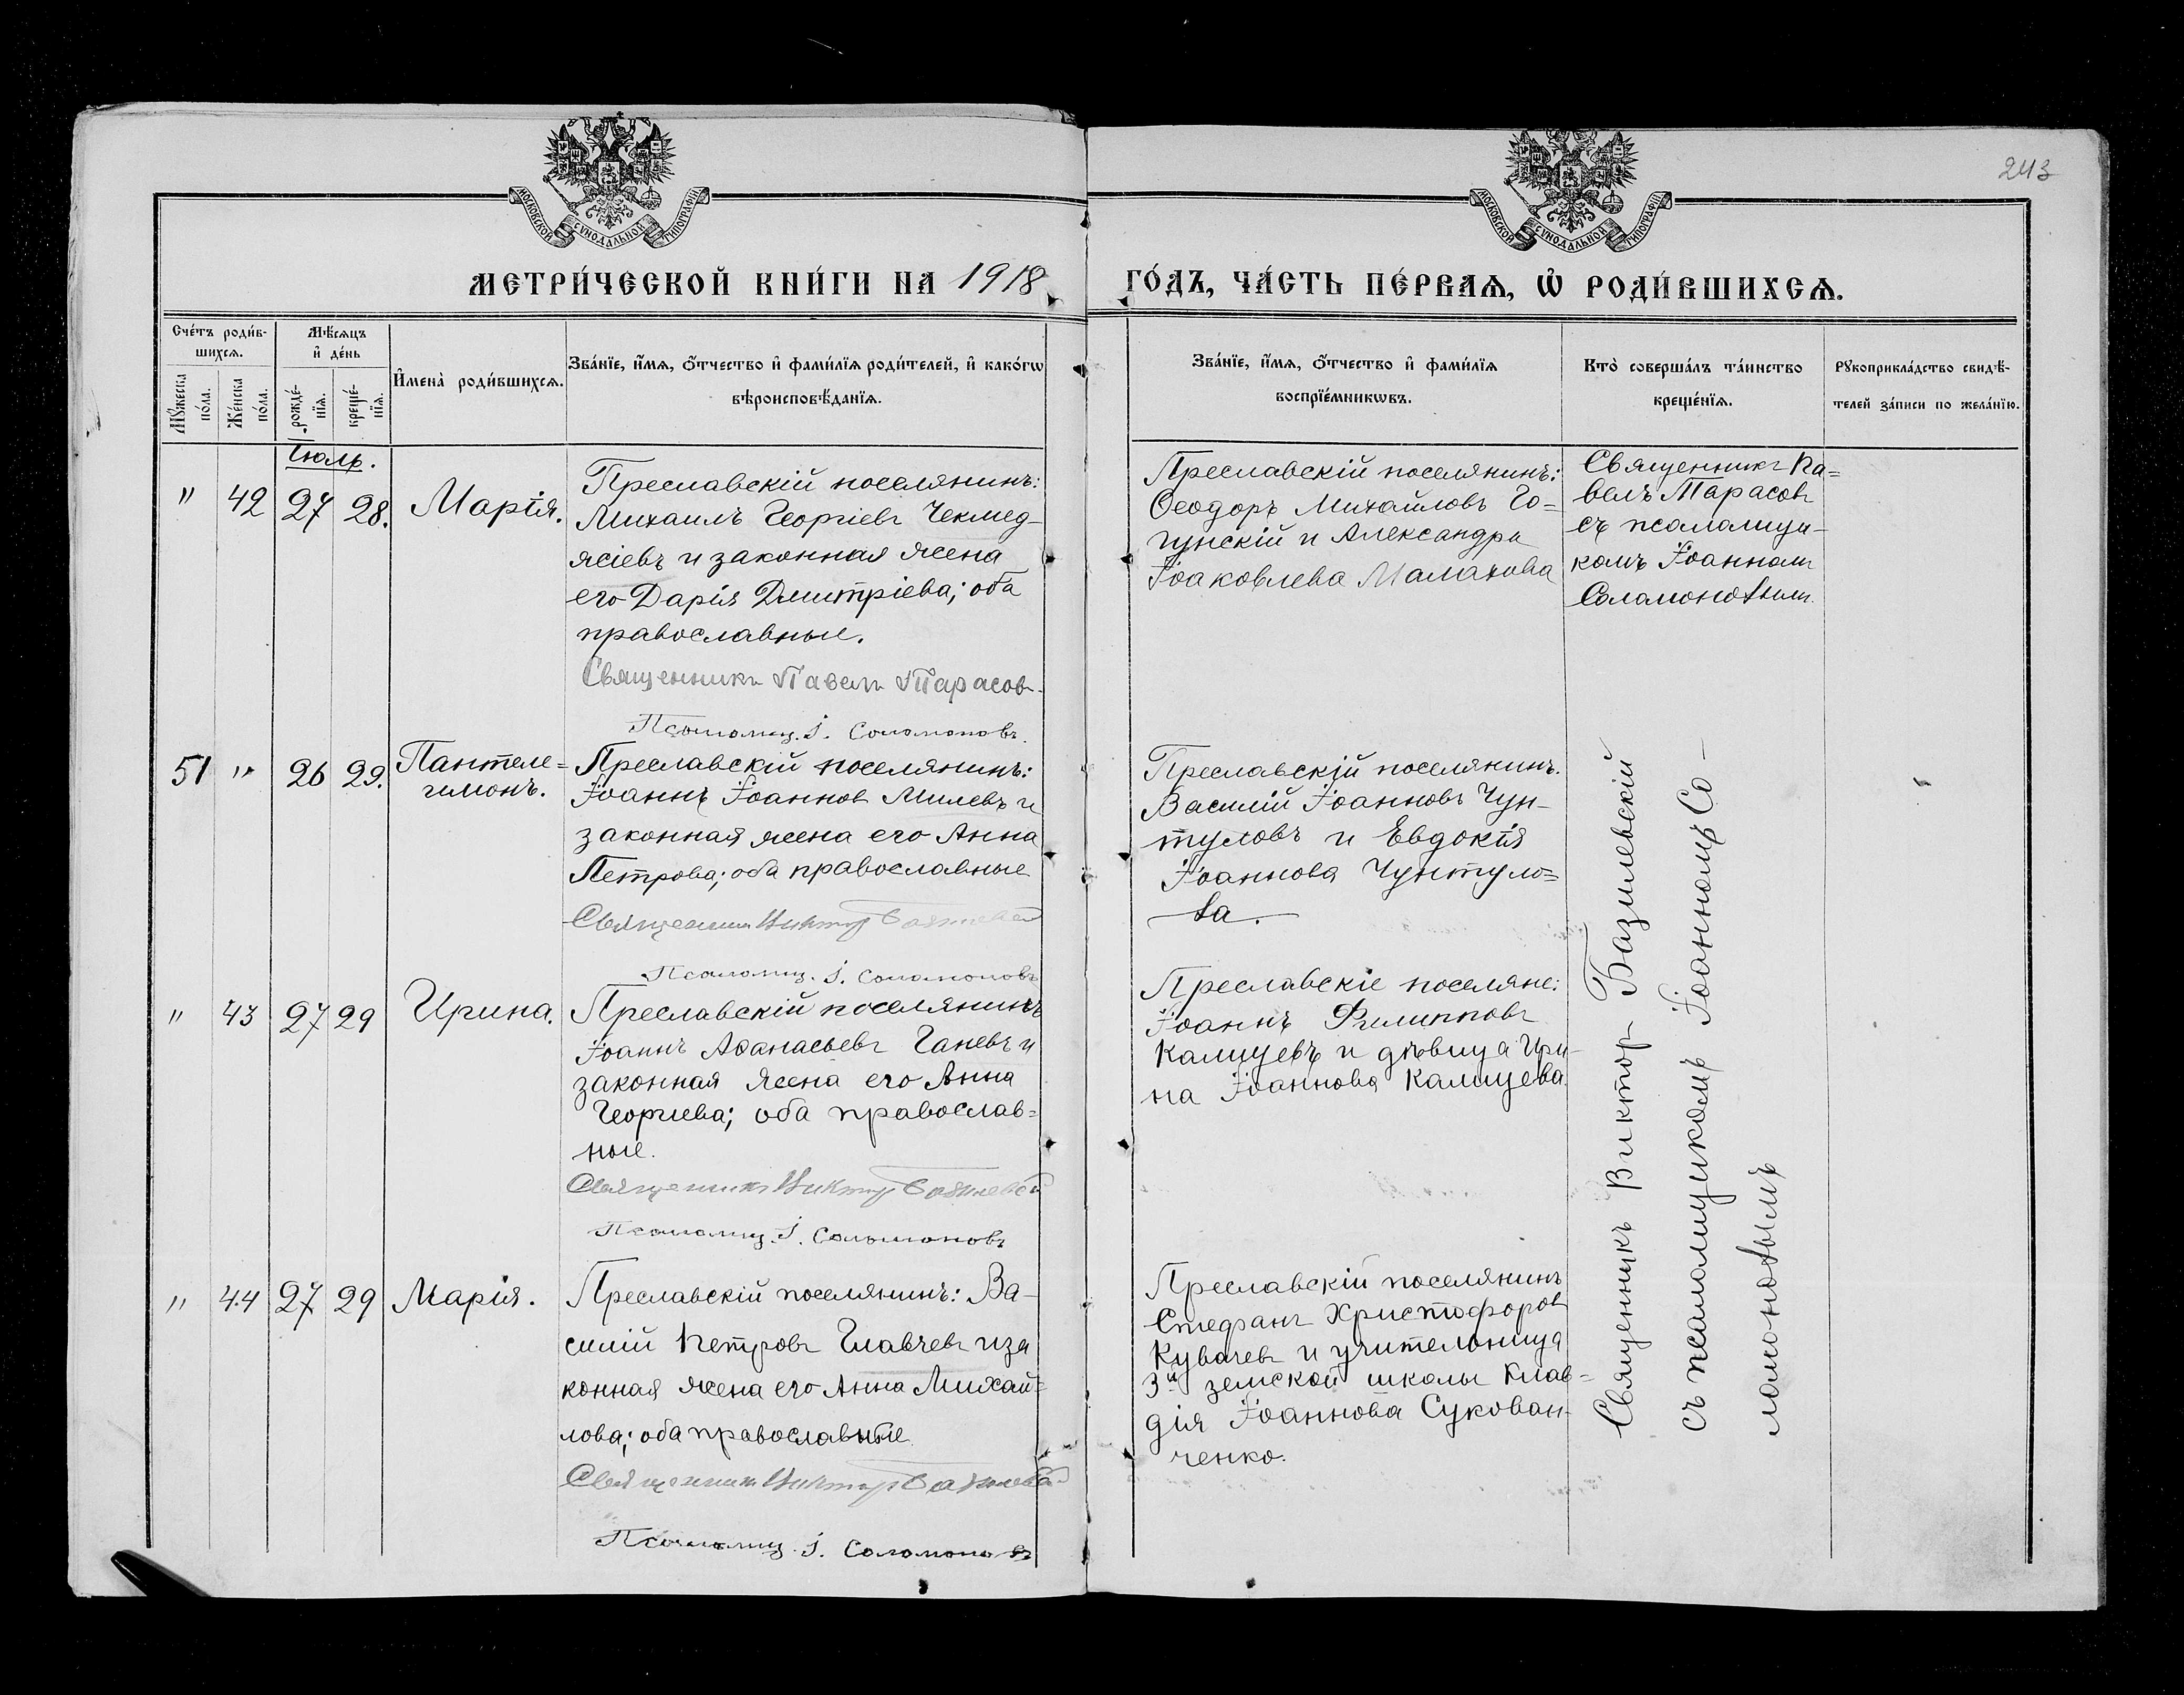 243
МОСКОВСКОЙ СѴНОДАЛЬНОЙ ТИПОГРАФІИ
МОСКОВСКОЙ СѴНОДАЛЬНОЙ ТИПОГРАФІИ
МЕТРИ́ЧЕСКОЙ КНИ́ГИ НА 1918
ГО́ДЪ, ЧА́СТЬ ПЕ́РВАѦ, Ѡ҆ РОДИ́ВШИХСѦ.
Сче́тъ роди́в-
шихсѧ.
Мꙋ́жеска
по́ла.
Же́нска
по́ла.
Мѣ́сѧцъ
и҆ де́нь
рожде́-
нїѧ.
креще́-
нїѧ.
И҆мена̀ роди́вшихсѧ.
Зва́нїе, и҆́мѧ, ѻ҆́тчество и҆ фами́лїѧ роди́телей, и҆ како́гѡ
вѣроисповѣ́данїѧ.
Зва́нїе, и҆́мѧ, ѻ҆́тчество и҆ фами́лїѧ
воспрїе́мникѡвъ.
Кто̀ соверша́лъ та́инство
креще́нїѧ.
Рꙋкоприкла́дство свидѣ́-
телей за́писи по жела́нїю.
Іюль.
" 42 27 28. Марія.
Преславскій поселянинъ:
Михаилъ Георгіевъ Чекмед-
жіевъ и законная жена
его Дарія Дмитріева; оба
православные.
Священникъ Павелъ Тарасовъ
Псаломщ. І. Соломоновъ.
Преславскій поселянинъ:
Ѳеодоръ Михайловъ Го=
гунскій и Александра
Іоаковлева Малахова
Священникъ Па=
велъ Тарасовъ
съ псаломщи-
комъ Іоанномъ
Соломоновымъ.
51 " 26 29. Пантеле=
имонъ.
Преславскій поселянинъ:
Іоаннъ Іоанновъ Милевъ и
законная жена его Анна
Петрова; оба православные
Священникъ Викторъ Базилевскій
Псаломщ. І. Соломоновъ
Преславскій поселянинъ.
Василій Іоанновъ Чун-
туловъ и Евдокія
Іоаннова Чунтуло=
ва.
" 43 27 29 Ирина.
Преславскій поселянинъ
Іоаннъ Аѳанасьевъ Ганевъ и
законная жена его Анна
Георгиева; оба православ=
ные.
Священникъ Викторъ Базилевскій
Псаломщ. І. Соломоновъ
Преславскіе поселяне:
Іоаннъ Филипповъ
Калицевъ и дѣвица Ири-
на Іоаннова Калицева.
" 44 27 29 Марія.
Преславскій поселянинъ: Ва-
силій Петровъ Главчевъ и за
конная жена его Анна Михай=
лова; оба православные
Священникъ Викторъ Базилевскій
Псаломщ. І. Соломоновъ
Преславскій поселянинъ
Стефанъ Христофоровъ
Кувачевъ и учительница
3й земской школы Клав=
дія Іоаннова Сукован-
ченко.
Священникъ Викторъ Базилевскій
съ псаломщикомъ Іоанномъ Со-
ломоновымъ